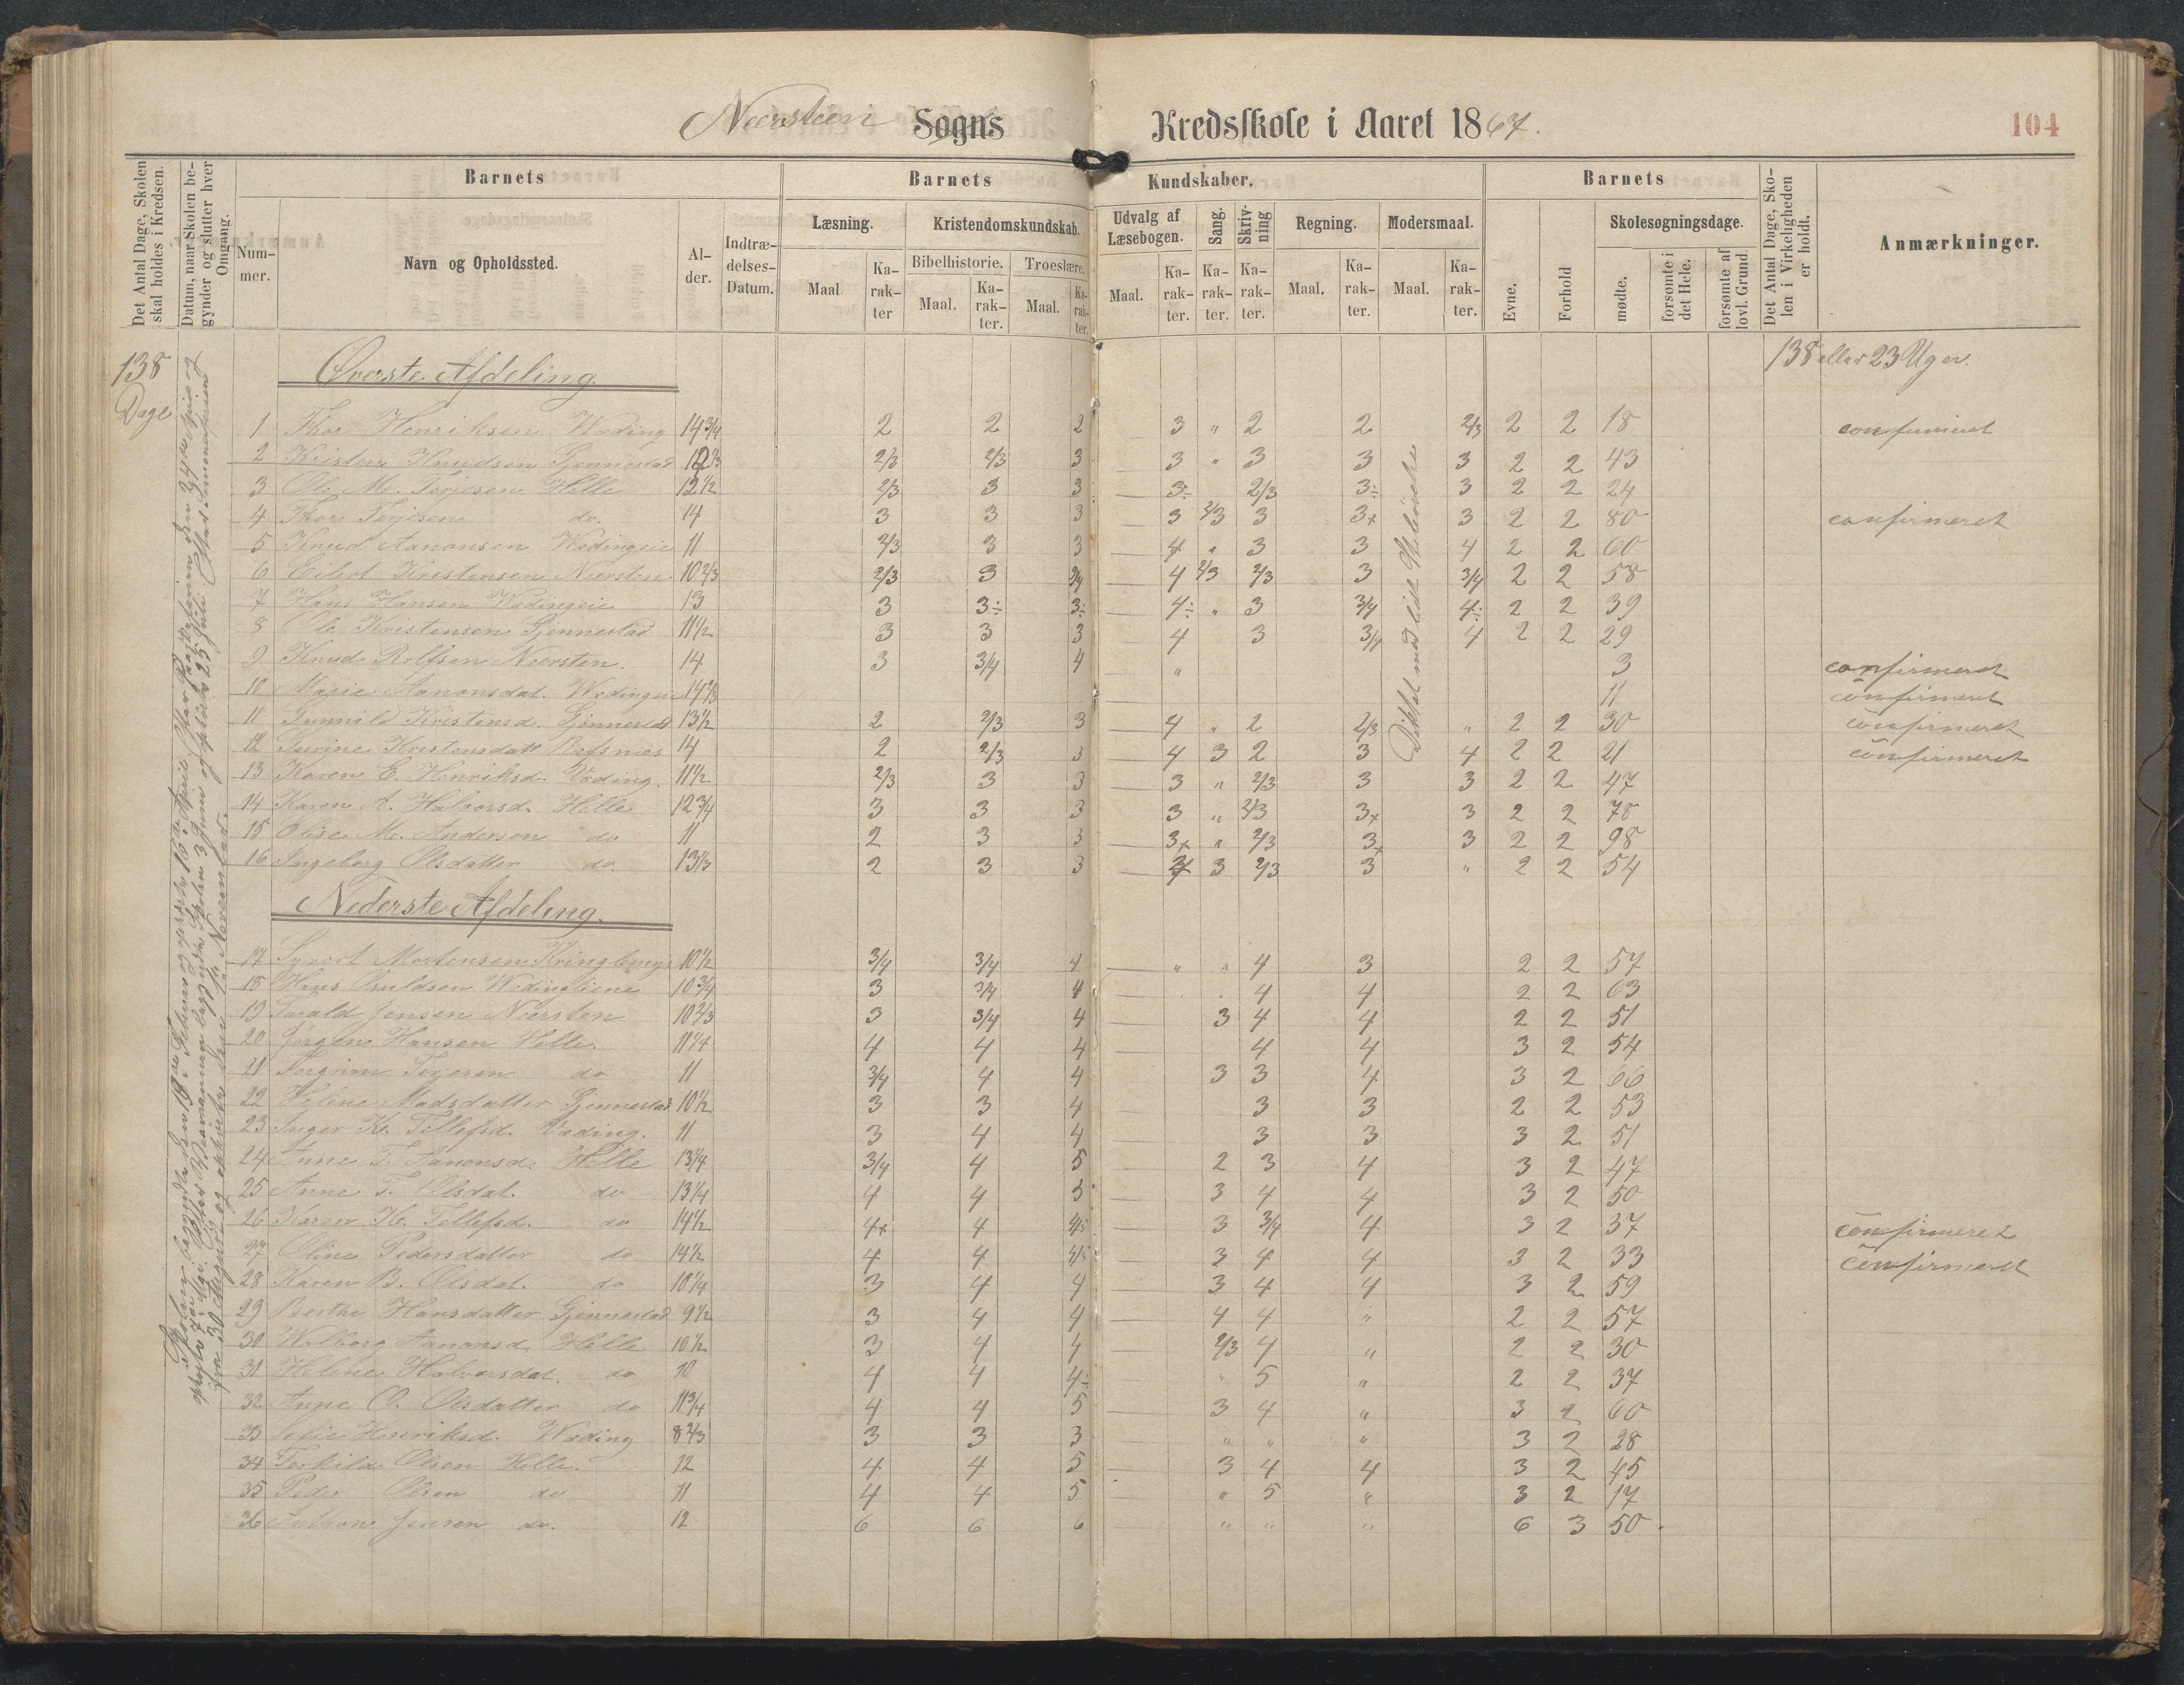 Neersteen Sogns Kredsskole i Aaret 1867.
104
Det Antal Dage, Skolen skal holdes i Kredsen.
Datum, naar Skolen begynder og slutter hver Omgang.
Barnets
Nummer.
Navn og Opholdssted.
Alder.
Indtrædelses-Datum.
Barnets Kundskaber.
Læsning.
Maal
Karakter
Kristendomskundskab.
Bibelhistorie.
Maal.
Karakter.
Troeslære.
Maal.
Karakter.
Udvalg af Læsebogen.
Maal.
Karakter.
Sang.
Karakter.
Skrivning
Karakter.
Regning.
Maal.
Karakter.
Modersmaal.
Maal.
Karakter.
Barnets
Evne.
Forhold
Skolesøgningsdage.
mødte.
forsømte i det Hele.
forsømte af lovl. Grund.
Det Antal Dage, Skolen i Virkeligheden er holdt.
Anmærkninger.
138 Dage
138 eller 23 Uger.
Øverste Afdeling.
1 Thor Henriksen Wæding 14 3/4 2 2 2 3 " 2 2 2/3 2 2 18 confirmeret
2 Kristen Knudsen Gjennestad 12 1/3 2/3 2/3 3 3 " 3 3 3 2 2 43
3 Ole M. Terjesen Helle 12 1/2 2/3 3 3 3÷ 2/3 3÷ 3 2 2 24
4 Thor Terjesen do. 14 3 3 3 3 2/3 3 3+ 3 2 2 80 confirmeret
5 Knud Aanonsen Wædingeie 11 2/3 3 3 4 " 3 3 4 2 2 60
6 Eilert Kristensen Neersten 10 2/3 2/3 3 3/4 4 2/3 2/3 3 3/4 2 2 58
7 Hans Hansen Wædingeie 13 3 3÷ 3÷ 4÷ " 3 3/4 4÷ 2 2 39
8 Ole Kristensen Gjennestad 11 1/2 3 3 3 4 3 3/4 4 2 2 29
9 Knud Rolfsen Neersten. 14 3 3/4 4 " 3 confirmeret
10 Marie Aanonsdat. Wædingeie 14 2/3 11 confirmeret
11 Gunnild Kristensd. Gjennestad 13 1/2 2 2/3 3 4 " 2 2/3 " 2 2 30 confirmeret
12 Gurine Kristensdatt Refsnes 14 2 2/3 3 4 3 2 3 4 2 2 21 confirmeret
13 Karen E. Henriksd. Væding. 11 1/2 2/3 3 3 3 " 2/3 3 3 2 2 47
14 Karen A. Halvorsd. Helle 12 3/4 3 3 3 3 " 2/3 3+ 3 2 2 78
15 Elise M. Andersen do 11 2 3 3 3+ " 2/3 3+ 3 2 2 98
16 Ingeborg Olsdatter do. 13 1/3 2 3 3 4 3 2/3 3 " 2 2 54
Diktat med lidt Stiløvelse
Nederste Afdeling.
17 Syvert Mortensen Kringlemyr 10 1/2 3/4 3/4 4 " " 4 3 2 2 57
18 Hans Osuldsen Wædingliene 10 3/4 3 3/4 4 4 4 2 2 63
19 Tarald Jensen Neersten 10 2/3 3 3/4 4 3 4 4 2 2 51
20 Jørgen Hansen Helle. 11 1/4 4 4 4 4 4 3 2 54
21 Torgrim Terjesen do 11 3/4 4 4 3 3 4 3 2 66
22 Helene Madsdatter Gjennestad 10 1/2 3 3 4 3 3 2 2 53
23 Inger K. Tellefsd. Væding. 11 3 4 4 3 3 3 2 51
24 Anne T. Aanonsd. Helle 13 1/4 3/4 4 5 2 3 4 3 2 47
25 Anne T. Olsdat. do 13 1/4 4 4 5 3 4 4 3 2 50
26 Karen K. Tellefsd. do 14 1/2 4+ 4 4/5 3 3/4 4 3 2 37 confirmeret
27 Oline Pedersdatter do 14 1/2 4 4 4/5 3 4 4 3 2 33 confirmeret
28 Karen B. Olsdat. do 10 1/4 3 4 4 3 4 4 3 2 59
29 Berthe Hansdatter Gjennestad 9 1/2 3 4 4 4 4 " 2 2 57
30 Walborg Aanonsd. Helle 10 1/2 3 4 4 2/3 4 " 2 2 30
31 Helene Halvorsdat. do 10 4 4 4÷ " 5 " 2 2 37
32 Anne O. Olsdatter do 11 3/4 4 4 5 3 4 " 3 2 60
33 Sofie Henriksd. Wæding 8 2/3 3 3 3 " " " 3 2 28
34 Terkild Olsen Helle. 12 4 4 5 3 4 4 3 2 45
35 Peder Olsen do 11 4 4 5 " 5 " 3 2 17
36 Anthon Jensen do. 12 6 6 6 " " " 6 3 50.